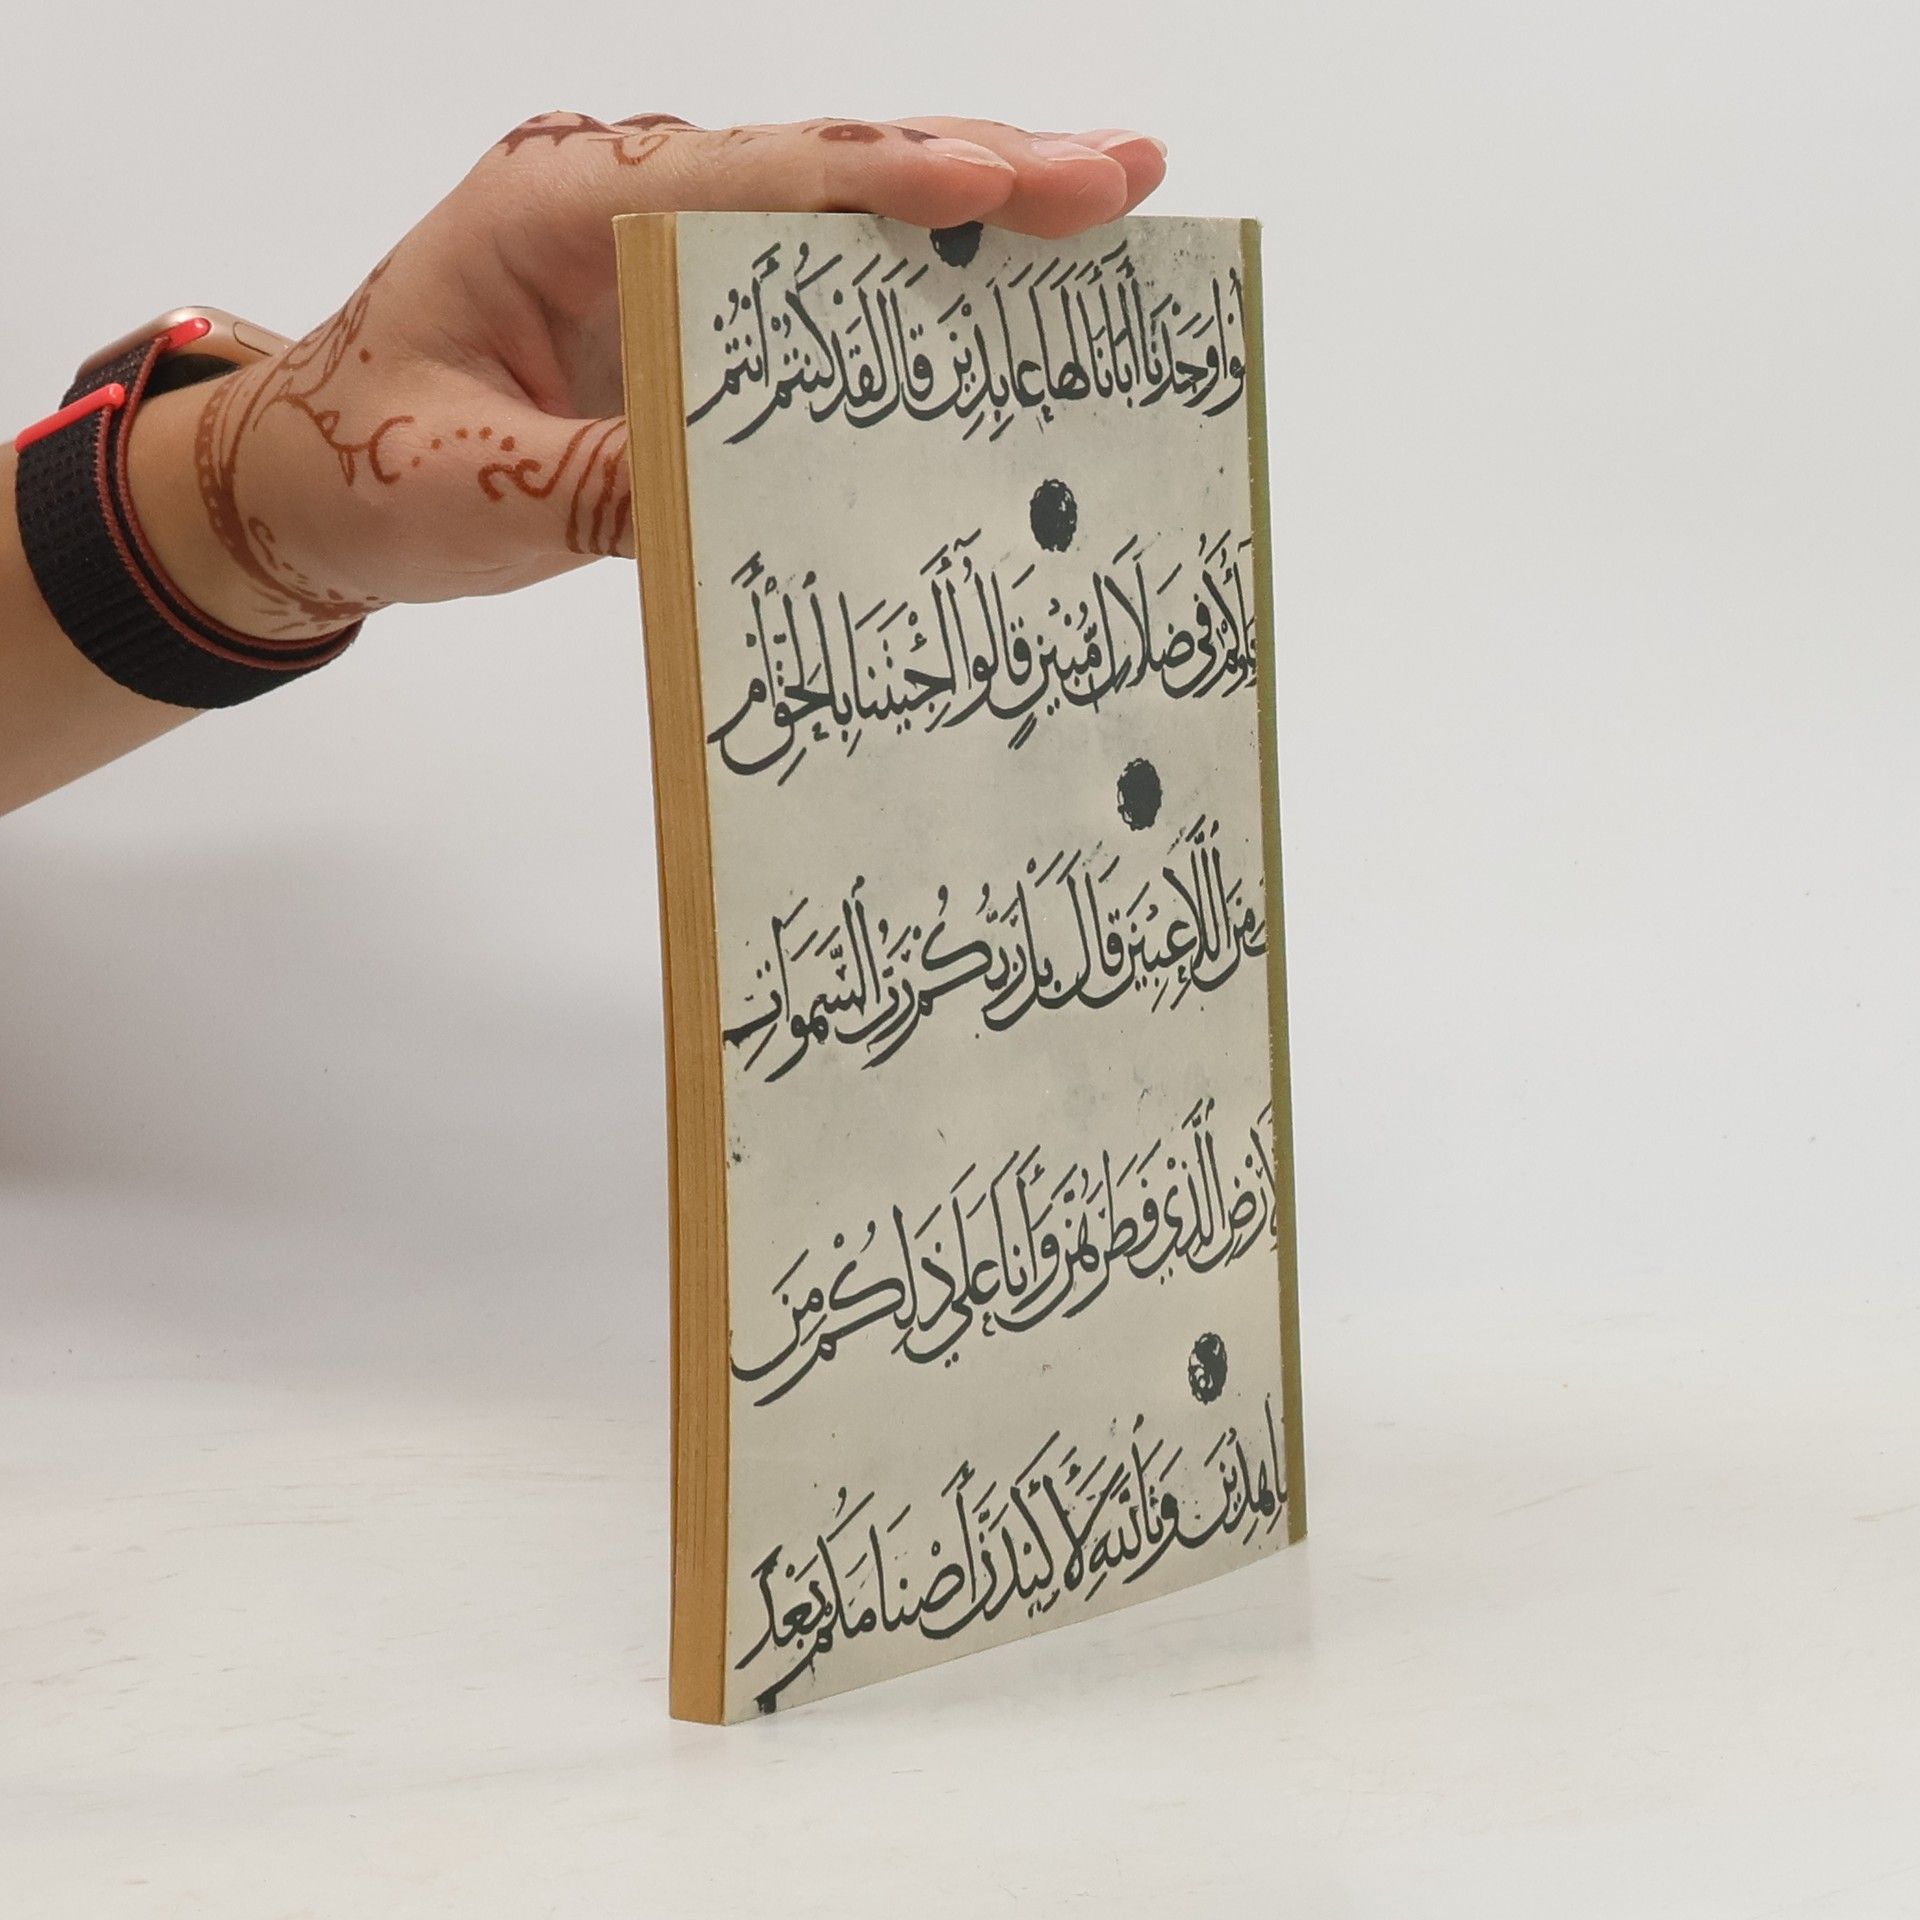 وَجَدْنَا أَبَاءَنَا لَهَا عَابِدِيْنَ قَالَ لَقَدْ كُنتُمْ أَنتُمْ
فِي ضَلَالٍ مُّبِيْنٍ قَالُوا أَجِئْتَنَا بِالْحَقِّ أَمْ
مِنَ اللَّاعِبِيْنَ قَالَ بَلْ رَبُّكُمْ رَبُّ السَّمَوَاتِ
الَّذِي فَطَرَهُنَّ وَأَنَا عَلَي ذَلِكُمْ مِنَ
وَتَاللَّهِ لَأَكِيْدَنَّ أَصْنَامَكُمْ بَعْدَ